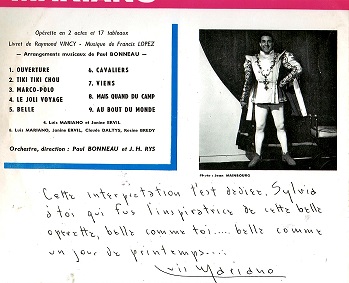 MARIANO
Opérette en 2 actes et 17 tableaux
Livret de Raymond VINCY - Musique de Francis LOPEZ
— Arrangements musicaux de Paul BONNEAU —
1. OUVERTURE
2. TIKI TIKI CHOU
3. MARCO-POLO
4. LE JOLI VOYAGE
5. BELLE
6. CAVALIERS
7. VIENS
8. MAIS QUAND DU CAMP
9. AU BOUT DU MONDE
4. Luis MARIANO et Janine ERVIL
8. Luis MARIANO, Janine ERVIL, Claude DALTYS, Rosine BREDY
Orchestre, direction : Paul BONNEAU et J. H. RYS
Photo : Jean MAINBOURG
Cette interpretation t'est dediée, Sylvia
à toi qui fus l'inspiratrice de cette belle
operette, belle comme toi..... belle comme
un jour de printemps....
Luis Mariano